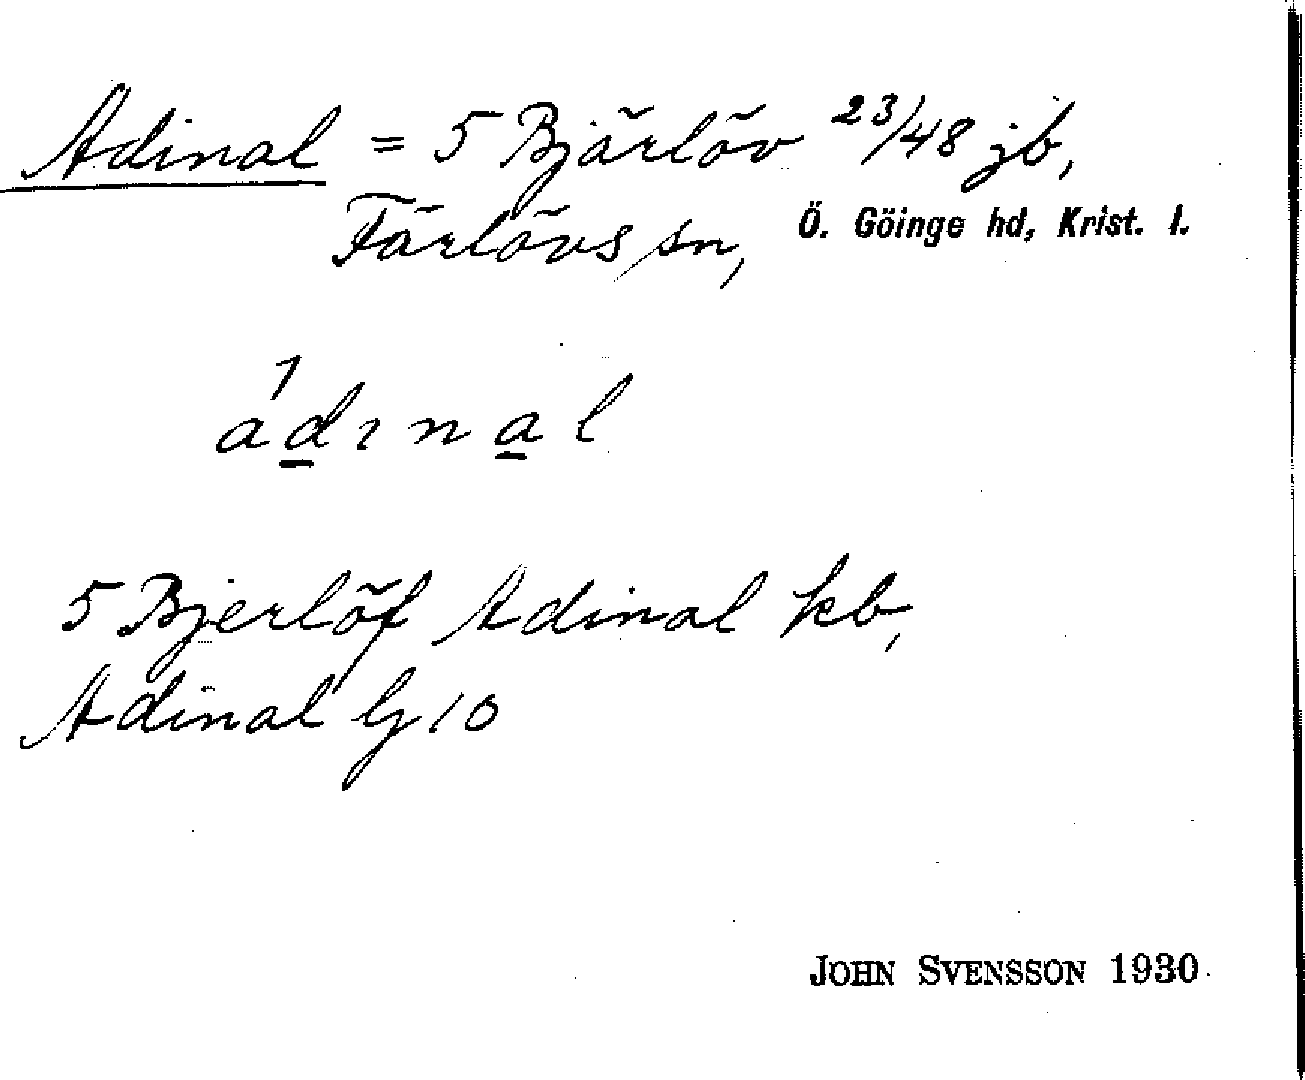 Adinal = 5 Bjärlöv 23/48 jb,
Färlövs sn, Ö. Göinge hd, Krist. l.
ad̲ına̲l
5 Bjerlöf Adinal kb,
Adinal G 10
JOHN SVENSSON 1930.